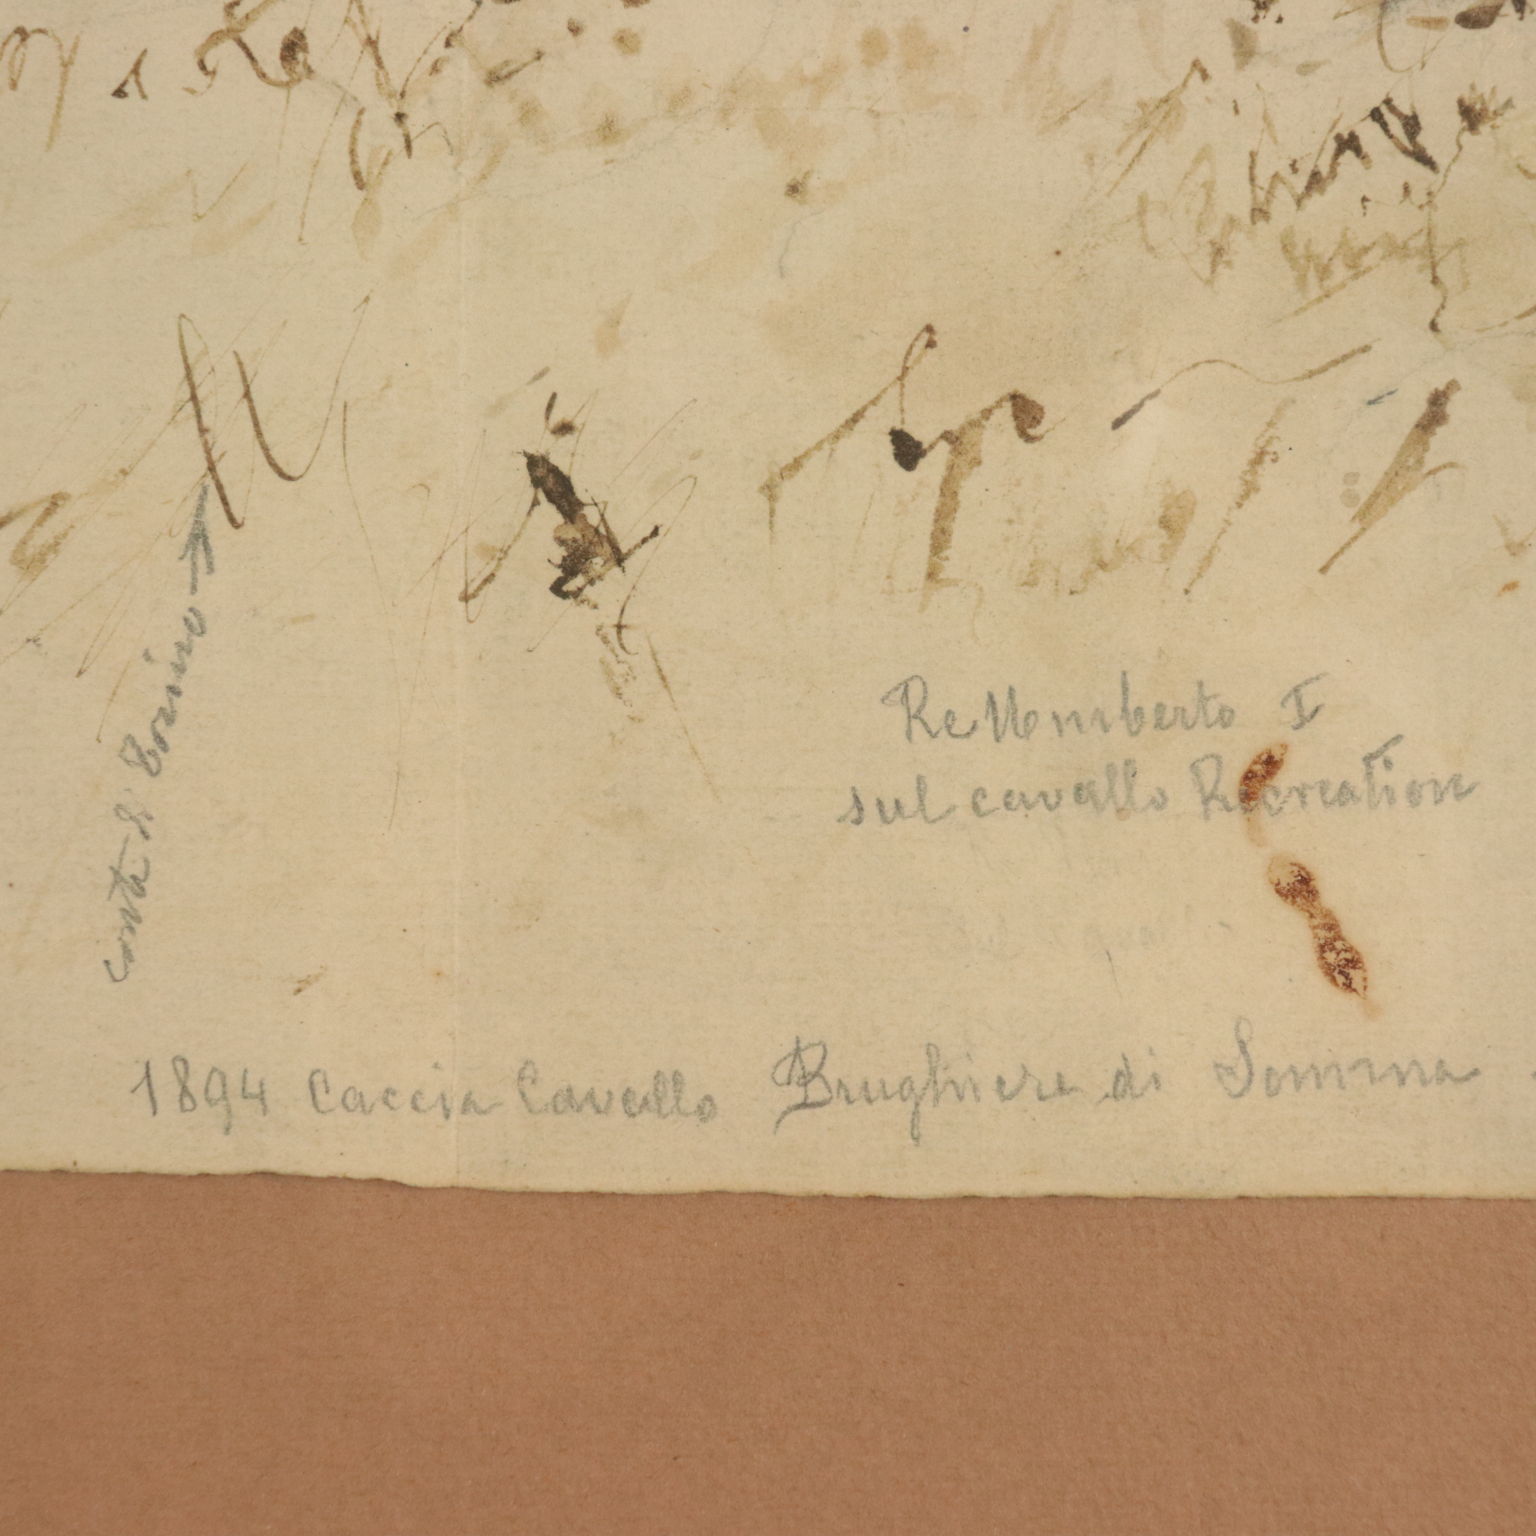 Re Umberto I
sul cavallo Recreation
conte di Torino
1894 Caccia Cavallo Brughiere di Somma